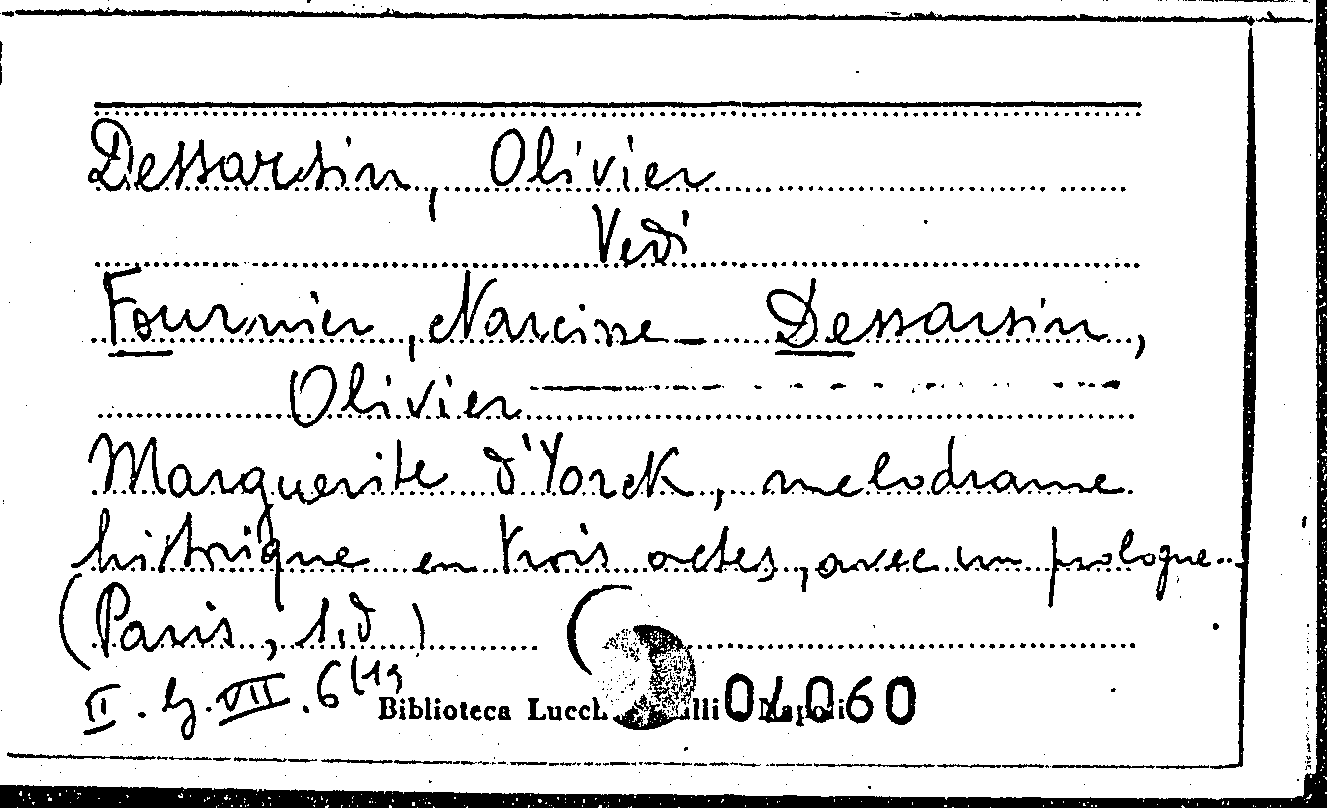 Dessarsin, Olivier
Vedi
Fournier, Narcisse - Dessarsin,
Olivier
Marguerite d'Yorck, melodrame
historique en trois actes, avec un prologue...
(Paris, s.d)
II. G. VII. 6(19
Biblioteca Lucch lli Napoli 04060